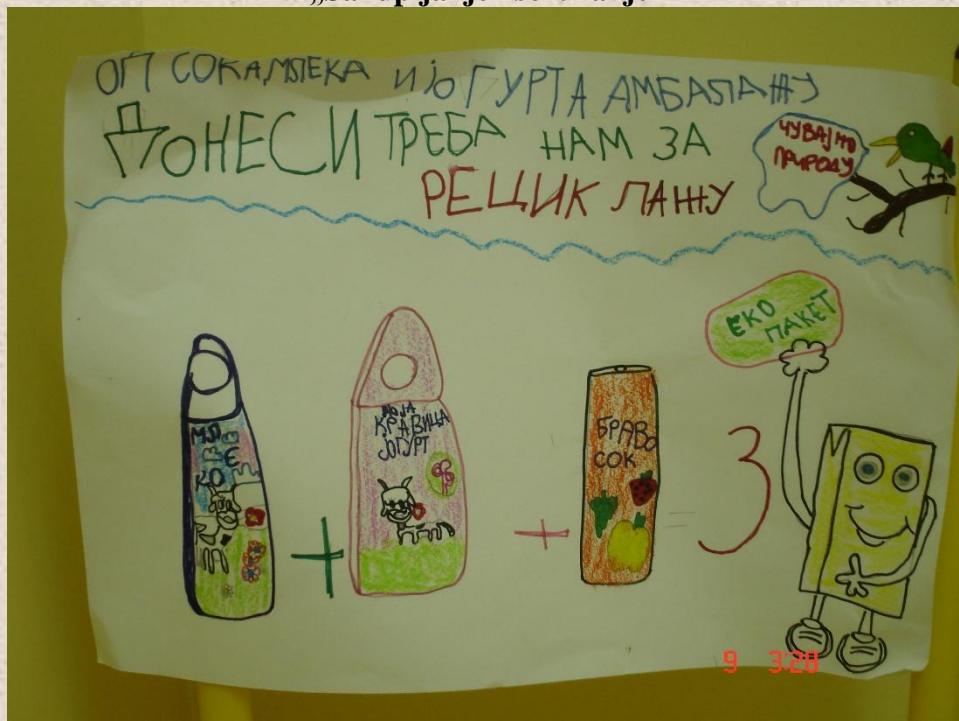 ОП СОКА,МЛЕКА И јОГУРТА АМБАЛАЖУ
ДОНЕСИ ТРЕБА НАМ ЗА
РЕЦИК ЛАЖУ
ЧУВАЈМО
ПРИРОДУ
ЕКО
ПАКЕТ
МЛ
Е
КО
+
МОЈА
КРАВИЦА
ЈОГУРТ
+
БРАВО
СОК
= 3
9 3:28